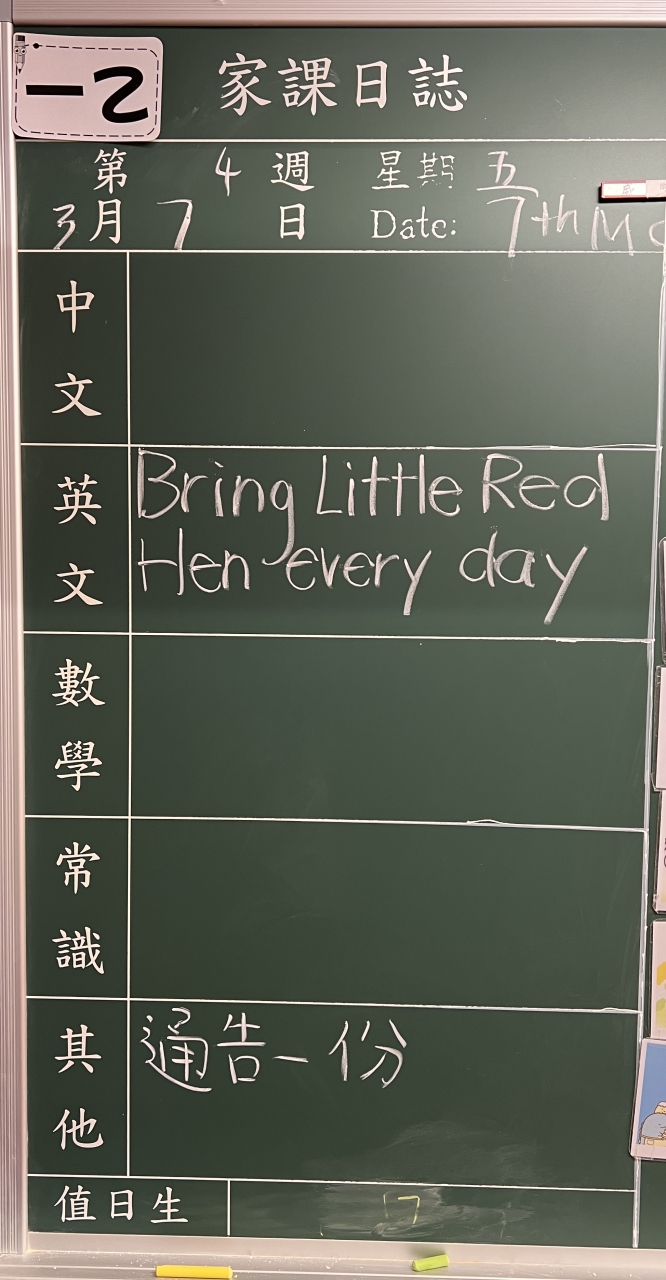 一乙
家課日誌
第 4 週 星期 五
3月 7 日 Date: 7th Ma
中文
英文 Bring Little Red
Hen every day
數學
常識
其他 通告一份
值日生 7